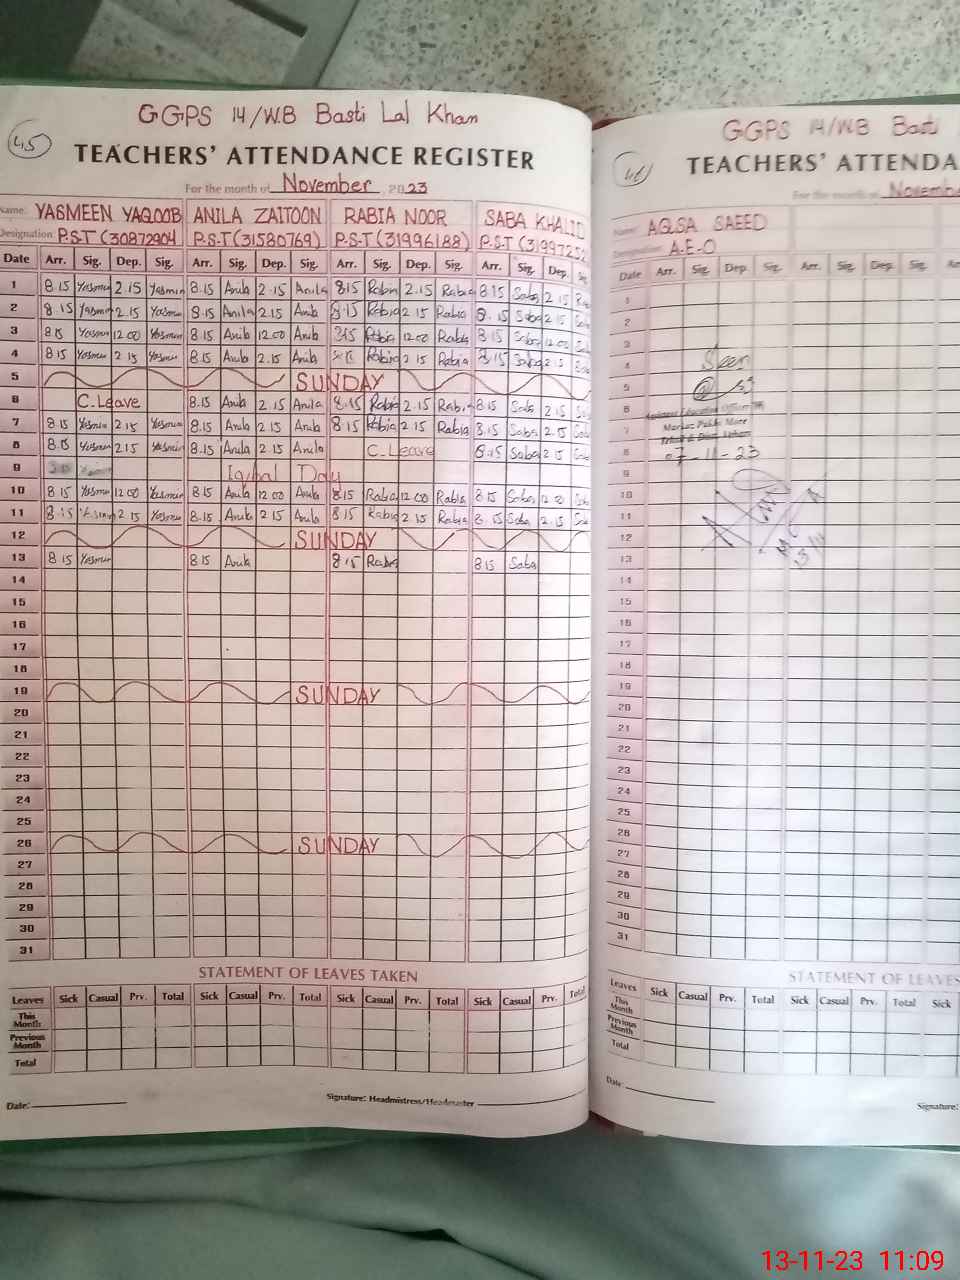 GGPS 14/W.B Basti Lal Khan
45
TEACHERS' ATTENDANCE REGISTER
For the month of November, 2023
Name: YASMEEN YAQOOB ANILA ZAITOON RABIA NOOR SABA KHALID
Designation: P.S.T (30872904 P.S.T (31580769) P.S.T (31996188) P.S.T (3199725
Date Arr. Sig. Dep. Sig. Arr. Sig. Dep. Sig. Arr. Sig. Dep. Sig. Arr. Sig. Dep. Sig
1 8.15 Yasmin 2.15 Yasmin 8.15 Anila 2.15 Anila 8.15 Rabia 2.15 Rabia 8.15 Saba 2.15
2 8.15 Yasmin 2.15 Yasmin 8.15 Anila 2.15 Anila 8.15 Rabia 2.15 Rabia 8.15 Saba 2.15 Saba
3 8.15 Yasmin 12.00 Yasmin 8.15 Anila 12.00 Anila 8.15 Rabia 12.00 Rabia 8.15 Saba 12.00 Saba
4 8.15 Yasmin 2.15 Yasmin 8.15 Anila 2.15 Anila Rabia 2.15 Rabia 8.15 Saba 2.15 Saba
5 SUNDAY
6 C.Leave 8.15 Anila 2.15 Anila 8.15 Rabia 2.15 Rabia 8.15 Saba 2.15 Saba
7 8.15 Yasmin 2.15 Yasmin 8.15 Anila 2.15 Anila 8.15 Rabia 2.15 Rabia 8.15 Saba 2.15 Saba
8 8.15 Yasmin 2.15 Yasmin 8.15 Anila 2.15 Anila C.Leave 8.15 Saba 2.15 Saba
9 Iqbal Day
10 8.15 Yasmin 12.00 Yasmin 8.15 Anila 12.00 Anila 8.15 Rabia 12.00 Rabia 8.15 Saba 12.00 Saba
11 8.15 Yasmin 2.15 Yasmin 8.15 Anila 2.15 Anila 8.15 Rabia 2.15 Rabia 8.15 Saba 2.15 Saba
12 SUNDAY
13 8.15 Yasmin 8.15 Anila 8.15 Rabia 8.15 Saba
14
15
16
17
18
19 SUNDAY
20
21
22
23
24
25
26 SUNDAY
27
28
29
30
31
STATEMENT OF LEAVES TAKEN
Leaves Sick Casual Prv. Total Sick Casual Prv. Total Sick Casual Prv. Total Sick Casual Prv. Total
This Month
Previous Month
Total
Date: Signature: Headmistress/Headmaster
GGPS 14/W.B Basti
46
TEACHERS' ATTENDA
For the month of Novemb
Name: AQSA SAEED
Designation: A.E.O
Date Arr. Sig. Dep. Sig. Arr. Sig. Dep. Sig.
1
2
3
4 Seen
5
6 Assistant Education Officer
7 Markaz Pakhi More
8 07-11-23
9
10
11
12
13
14
15
16
17
18
19
20
21
22
23
24
25
26
27
28
29
30
31
STATEMENT OF LEAVES
Leaves Sick Casual Prv. Total Sick Casual Prv. Total Sick
This Month
Previous Month
Total
Date: Signature:
13-11-23 11:09